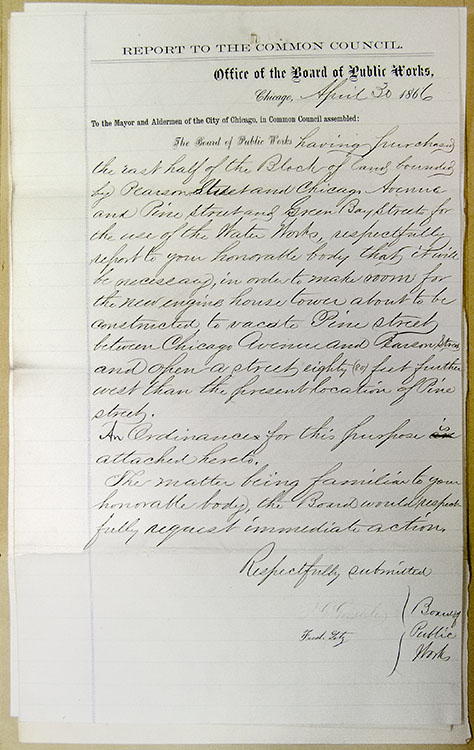 REPORT TO THE COMMON COUNCIL.
Office of the Board of Public Works,
Chicago, April 30 1866
To the Mayor and Aldermen of the City of Chicago, in Common Council assembled:
The Board of Public Works having purchased
the east half of the Block of land bounded
by Pearson Street and Chicago Avenue
and Pine Street and Green Bay Street, for
the use of the Water Works, respectfully
report to your honorable body that it will
be necessary, in order to make room for
the new engine house tower about to be
constructed to vacate Pine street
between Chicago Avenue and Pearson Street
and open a street eighty (80) feet further
west than the present location of Pine
street.
An Ordinances for this purpose is
attached hereto.
The matter being familiar to your
honorable body, the Board would respect
fully request immediate action.
Respectfully submitted
Fred. Letz
Board of
Public
Works